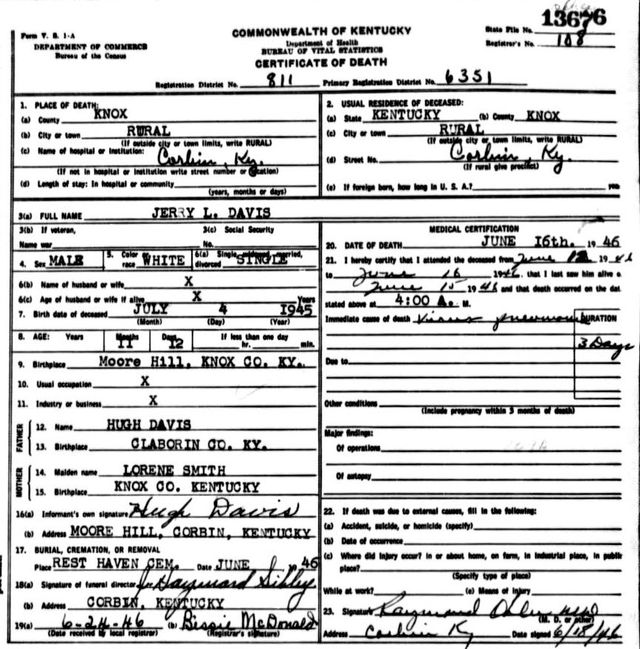 13676
Form V. S. 1-A
DEPARTMENT OF COMMERCE
Bureau of the Census
COMMONWEALTH OF KENTUCKY
Department of Health
BUREAU OF VITAL STATISTICS
CERTIFICATE OF DEATH
State File No.
Registrar's No. 108
Registration District No. 811 Primary Registration District No. 6351
1. PLACE OF DEATH:
(a) County KNOX
(b) City or town RURAL
(If outside city or town limits, write RURAL)
(c) Name of hospital or institution: Corbin, Ky.
(If not in hospital or institution write street number or location)
(d) Length of stay: In hospital or community
(years, months or days)
2. USUAL RESIDENCE OF DECEASED:
(a) State KENTUCKY (b) County KNOX
(c) City or town RURAL
(If outside city or town limits, write RURAL)
(d) Street No. Corbin, Ky.
(If rural give precinct)
(e) If foreign born, how long in U. S. A.?
3(a) FULL NAME JERRY L. DAVIS
3(b) If veteran, 3(c) Social Security
Name war No.
4. Sex MALE 5. Color or race WHITE 6(a) Single, widowed, married, divorced SINGLE
6(b) Name of husband or wife X
6(c) Age of husband or wife if alive X Years
7. Birth date of deceased JULY 4 1945
(Month) (Day) (Year)
8. AGE: Years Months Days If less than one day
11 12 hr. min.
9. Birthplace Moore Hill, KNOX CO. KY.
10. Usual occupation X
11. Industry or business X
FATHER
12. Name HUGH DAVIS
13. Birthplace CLABORIN CO. KY.
MOTHER
14. Maiden name LORENE SMITH
15. Birthplace KNOX CO. KENTUCKY
16(a) Informant's own signature Hugh Davis
(b) Address MOORE HILL, CORBIN, KENTUCKY
17. BURIAL, CREMATION, OR REMOVAL
Place REST HAVEN CEM. Date JUNE 46
18(a) Signature of funeral director J. Haymond Sibley
(b) Address CORBIN, KENTUCKY
19(a) 6-24-46 (b) Bessie McDonald
(Date received by local registrar) (Registrar's signature)
MEDICAL CERTIFICATION
20. DATE OF DEATH JUNE 16th. 1946
21. I hereby certify that I attended the deceased from June 12 1946
to June 16 1946, that I last saw him alive o
June 15 1946 and that death occurred on the dat
stated above at 4:00 A. M.
Immediate cause of death Virus pneumonia
DURATION
3 Days
Due to
Other conditions
(Include pregnancy within 3 months of death)
Major findings:
Of operations
Of autopsy
22. If death was due to external causes, fill in the following:
(a) Accident, suicide, or homicide (specify)
(b) Date of occurrence
(c) Where did injury occur? in or about home, on farm, in industrial place, in public
place?
(Specify type of place)
While at work? (e) Means of injury
23. Signature Raymond
(M. D. or other)
Address Corbin Ky Date signed 6/18/46